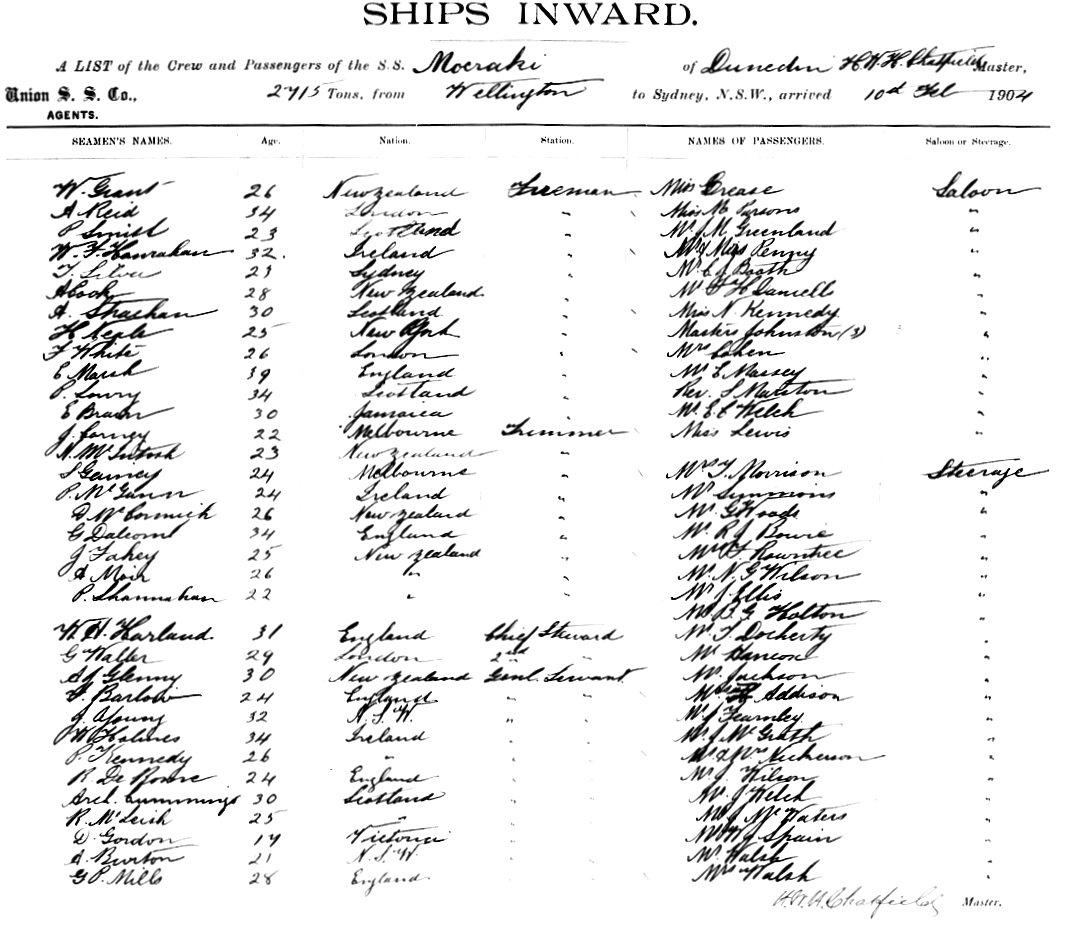 SHIPS INWARD.
A LIST of the Crew and Passengers of the S.S. Moeraki of Dunedin H.W.H. Chatfield Master,
Union S. S. Co., 2715 Tons, from Wellington to Sydney, N.S.W., arrived 10th Feb 1904
AGENTS.
SEAMEN'S NAMES. Age. Nation. Station. NAMES OF PASSENGERS. Saloon or Steerage.
W. Grant 26 New Zealand Fireman Miss Crease Saloon
A Reid 34 London " Miss M Parsons "
P Smith 23 Scotland " Mr J.M. Greenland "
W. F. Hanrahan 32. Ireland " Mr & Miss Penny "
T. Silva 23 Sydney " Mr C J Booth "
A Cook 28 New Zealand " Mr F H Daniell "
A. Strachan 30 Scotland " Miss N. Kennedy "
H Neale 25 New York " Masters Johnston (3) "
F White 26 London " Mrs Cohen "
E Marsh 39 England " Mr E Massey "
P. Lowry 34 Scotland " Rev. S Marston "
E Brown 30 Jamaica " Mr. E C Welch "
J. Carney 22 Melbourne Trimmer Miss Lewis "
N. McIntosh 23 New Zealand "
S Gainey 24 Melbourne " T. Morrison Steerage
P. McGann 24 Ireland " Mr Simmons "
D McCormick 26 New Zealand " Mr. G Woods "
G 34 England " Mr. R J Bowie "
J Fahey 25 New Zealand " Rowntree "
A Moir 26 " " Mr. N. G Wilson "
P. Shannahan 22 " " Mr J. Ellis "
B. G Holton "
W. H. Harland. 31 England Chief Steward Mr T. Docherty "
G Waller 29 London 2nd " Mr "
A J Glenny 30 New Zealand Genl. Servant Mr. Jackson "
F. Barlow 24 England " " Addison "
J. A Young 32 N.S.W. " " Mr J Fearnley "
W Holmes 34 Ireland " " Mr. J McGrath "
P. Kennedy 26 " " " Mr & Mrs Nickerson "
R De Rome 24 England " " Mr J. Wilson "
Arch. Cummings 30 Scotland " " Mr J Welch "
R. McLeish 25 " " " Mr J McWaters "
D. Gordon 19 Victoria " " Mr W J Spain "
A. Burton 21 N.S.W. " " Mr. Walsh "
G P. Mills 28 England " " Mrs Walsh "
H.W.H. Chatfield Master.